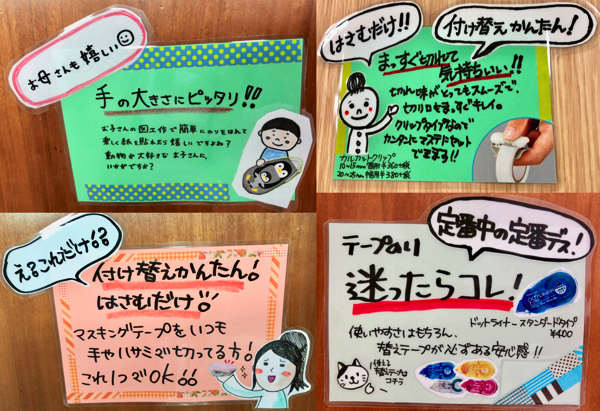 お母さんも嬉しい
手の大きさにピッタリ!!
お子さんの図工作で簡単にのりをはれて
楽しく紙と貼れたり嬉しいですよね?
動物が大好きなお子さんに、
いかがですか?
はさむだけ!!
付け替えかんたん!
まっすぐ切れて
気持ちいい!!
切れ味がとってもスムーズで、
切り口もまっすぐキレイ。
クリップタイプなので
カンタンにマステにセット
できます!!
カルカットクリップ
10~15mm幅用 ¥360+税
20~25mm幅用 ¥380+税
え?これだけ!?
付け替えかんたん!
はさむだけ!!
マスキングテープをいつも
手やハサミで切ってる方!
これ1つでOK!!
定番中の定番デス!
テープのり
迷ったらコレ!
ドットライナースタンダードタイプ
¥400
使いやすさはもちろん、
替えテープが必ずある安心感!!
使える
替えテープは
コチラ